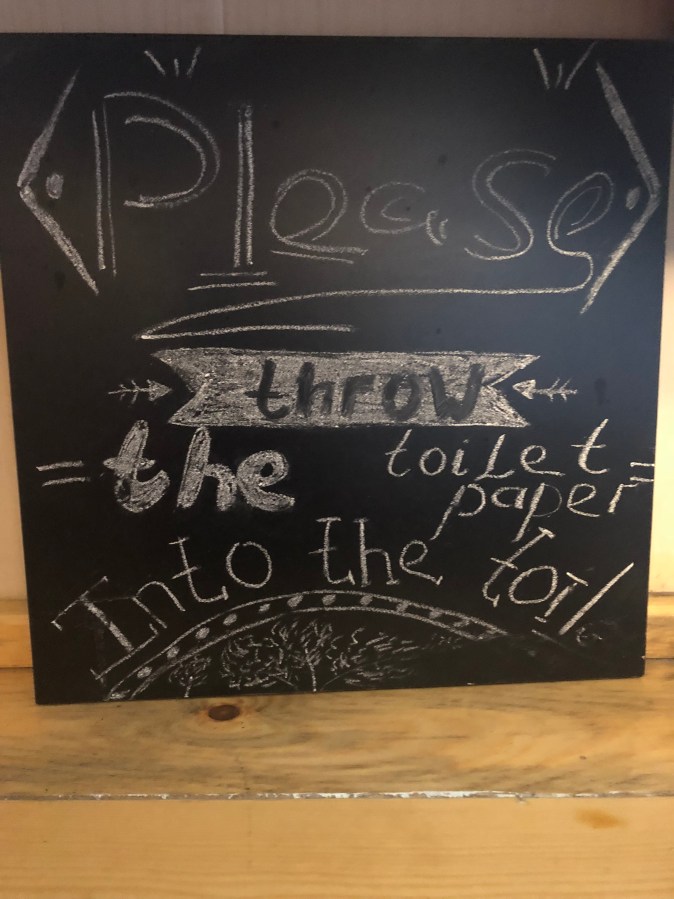 Please
throw
the toilet
paper
Into the toil